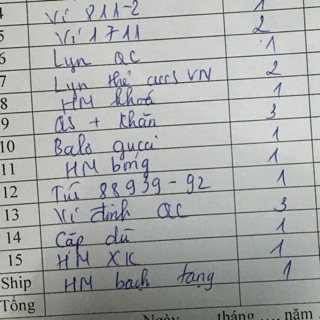 4 Ví 811-2 1
5 Ví 1711 2
6 Lyn QC 1
7 Lyn thẻ cccs VN 2
8 HM khoá 1
9 QS + khăn 3
10 Balo gucci 1
11 HM bóng 1
12 Túi 88939-92 1
13 Ví đinh QC 3
14 Cặp dù 1
15 HM XK 1
Ship HM bach tang 1
Tổng
Ngày tháng .... năm